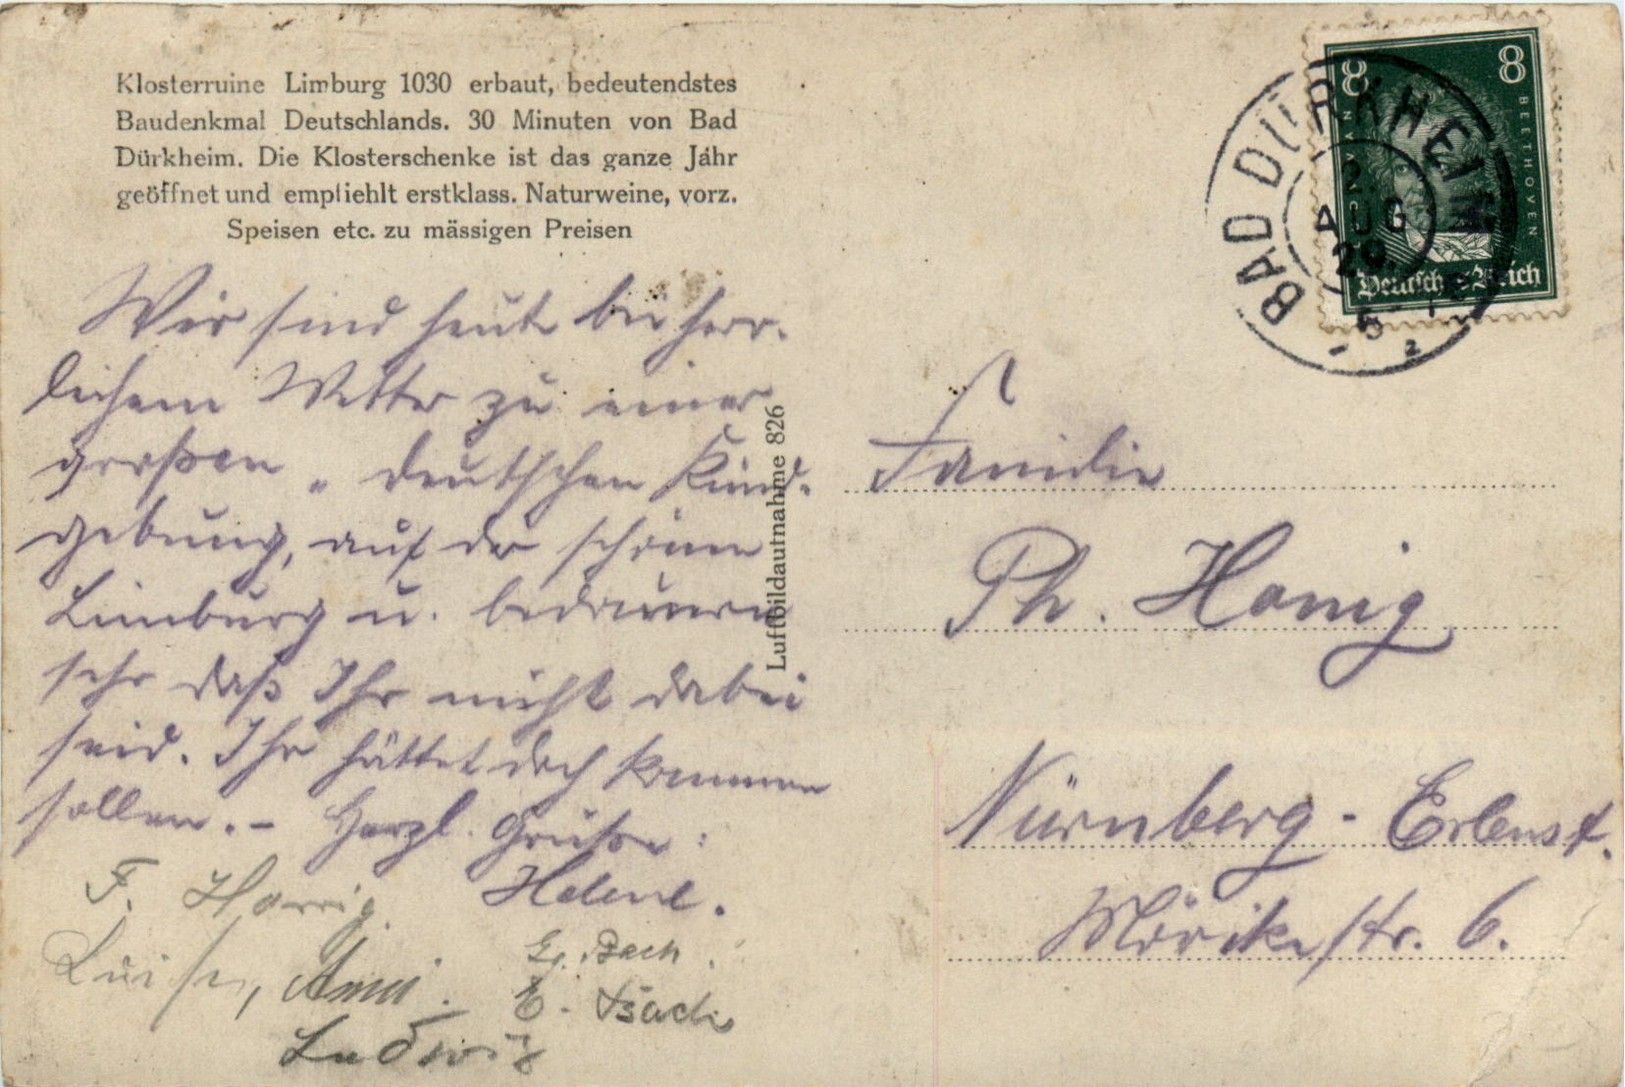 Klosterruine Limburg 1030 erbaut, bedeutendstes
Baudenkmal Deutschlands. 30 Minuten von Bad
Dürkheim. Die Klosterschenke ist das ganze Jahr
geöffnet und empfiehlt erstklass. Naturweine, vorz.
Speisen etc. zu mässigen Preisen
Wir sind heute bei herr-
lichem Wetter zu einer
großen „deutschen Kund-
gebung, auf der schönen
Limburg u. bedauern
sehr daß Ihr nicht dabei
seid. Ihr hättet doch kommen
sollen. – Herzl. Grüße:
Helene.
F. Honig
Luise, Anni.
Bach
E. Bach
Ludwig
Luftbildaufnahme 826
8 8
BEETHOVEN
Deutsches Reich
BAD DÜRKHEIM
2.
AUG
29
5
2
Familie
Ph. Honig
Nürnberg - Erlenst.
Mörikestr. 6.